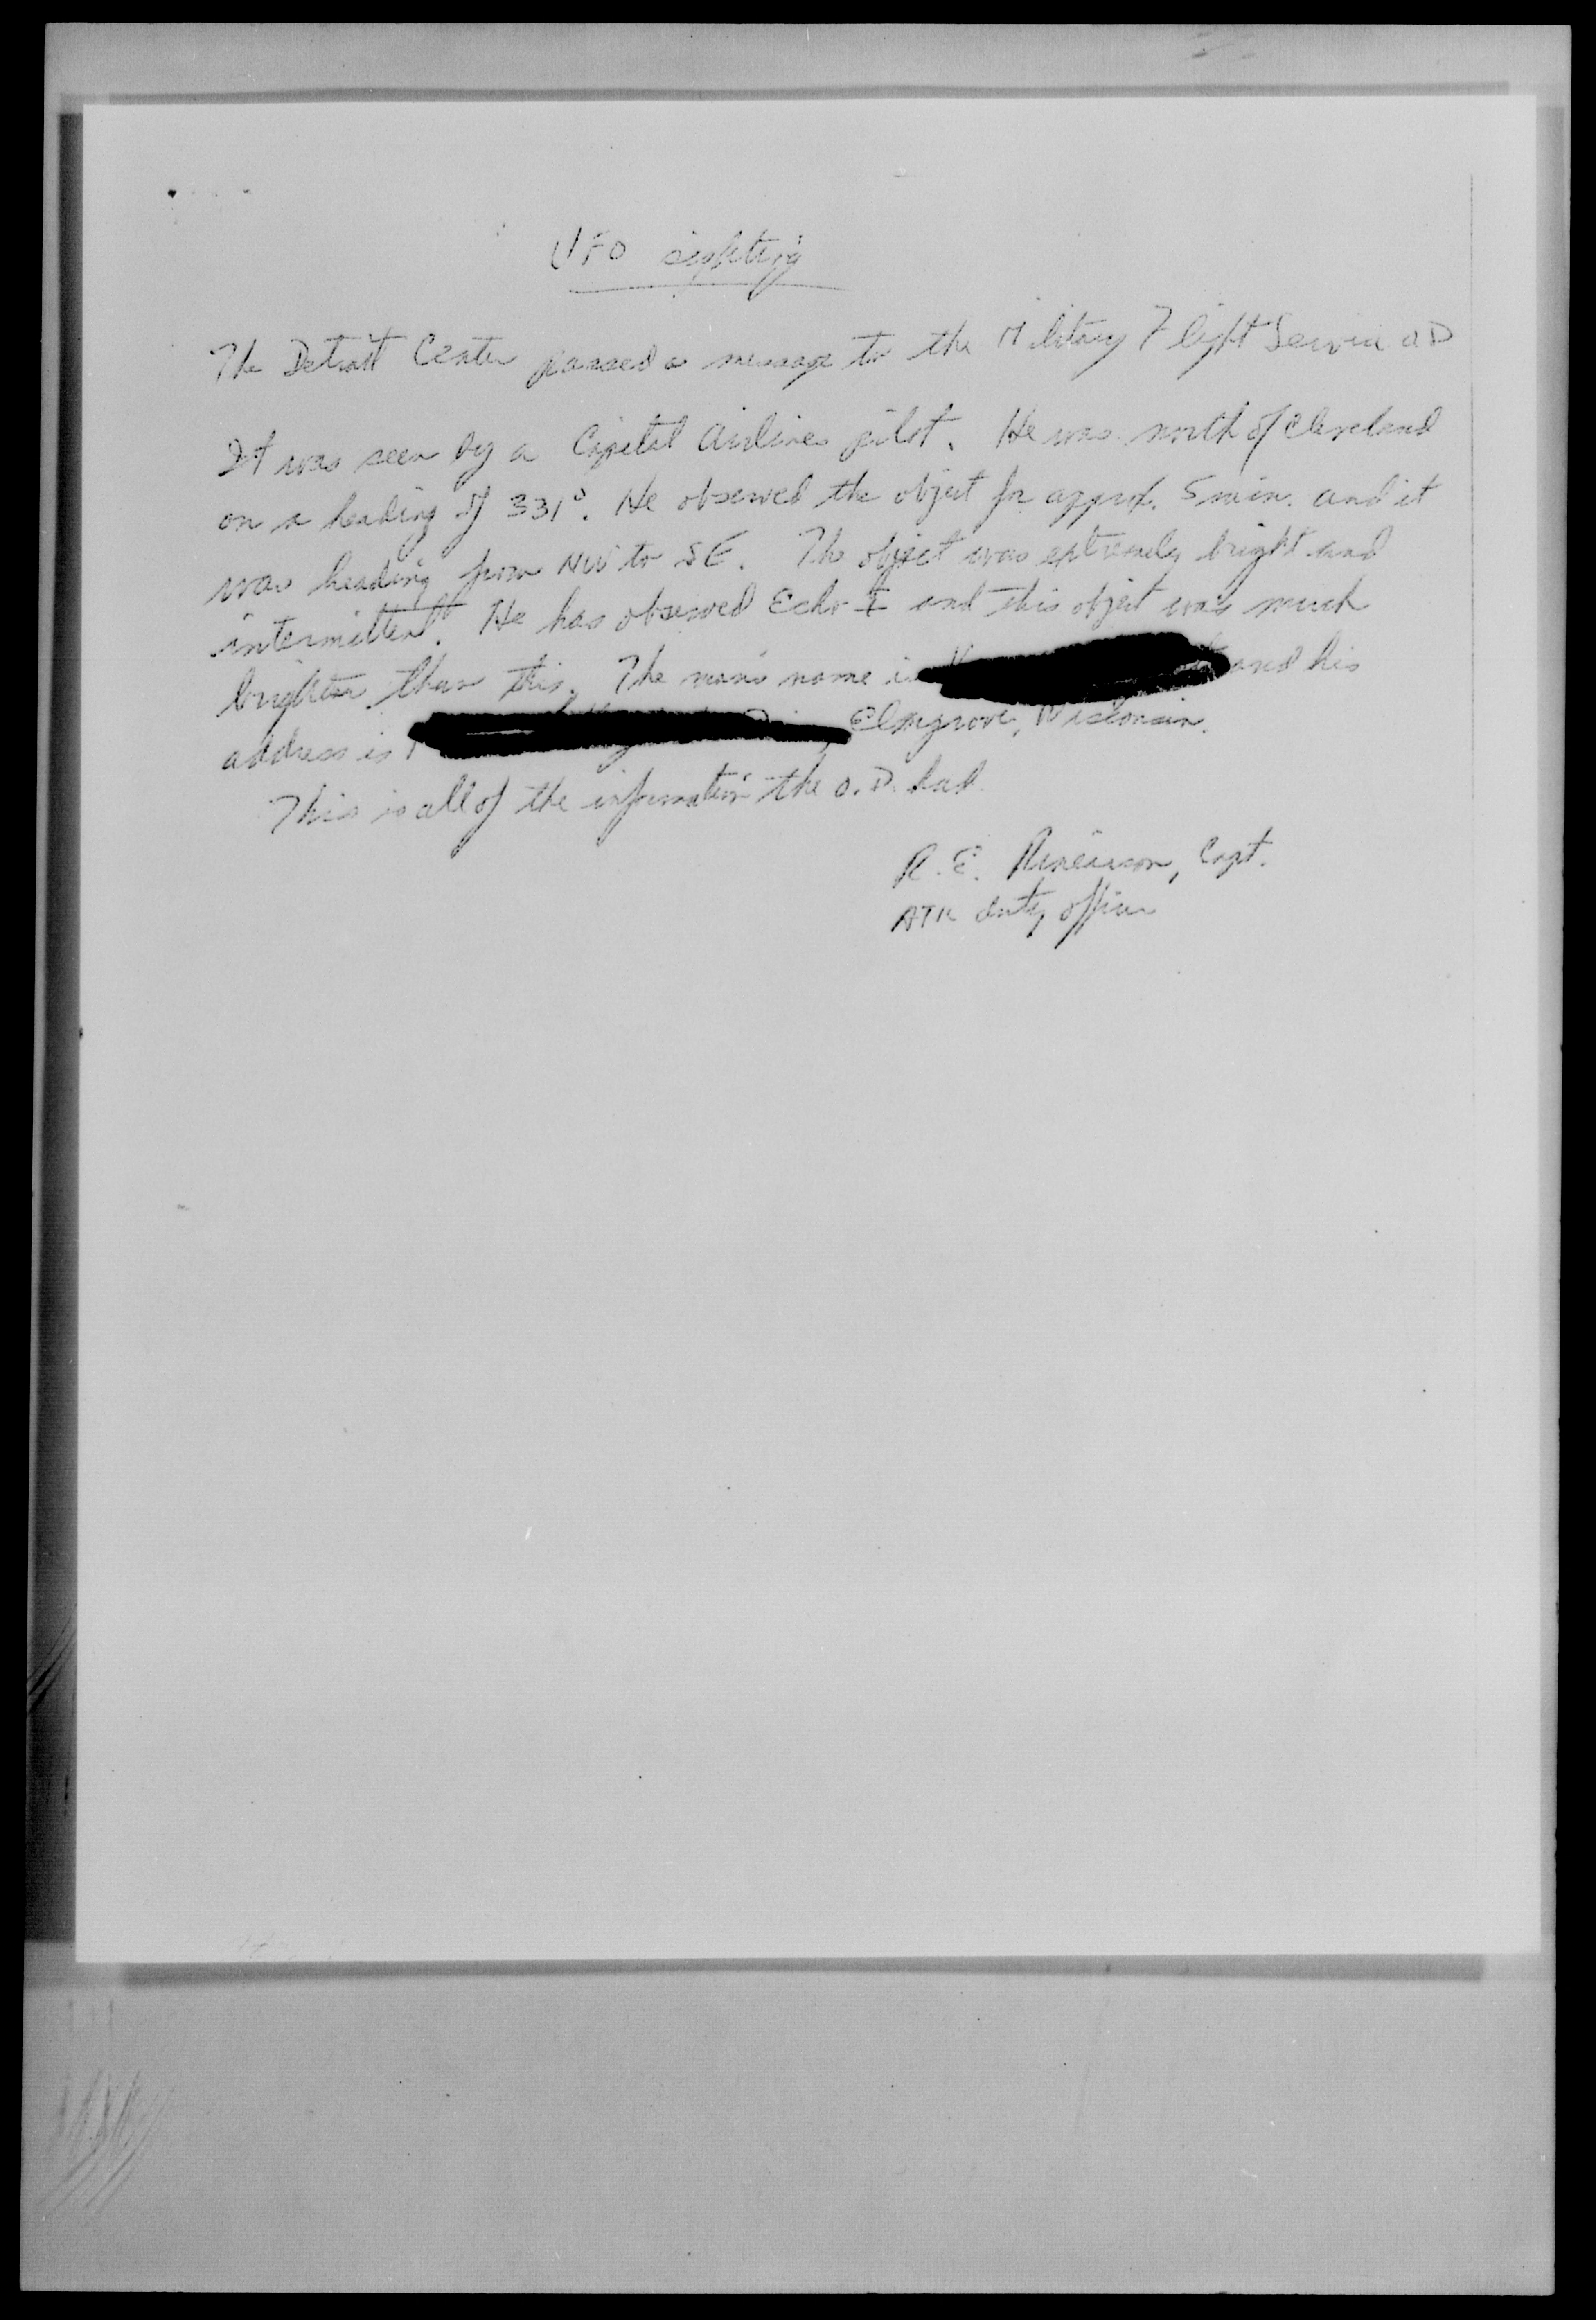 UFO sighting
The Detroit Center passed a message to the Military Flight Service OD
It was seen by a Capital Airlines pilot. He was north of Cleveland
on a heading of 331°. He observed the object for approx. 5 min. and it
was heading from NW to SE. The object was extremely bright and
intermittent. He has observed Echo I and this object was much
brighter than this. The man's name is and his
address is Elmgrove, Wisconsin.
This is all of the information the O.D. had.
R. E. Capt.
duty officer